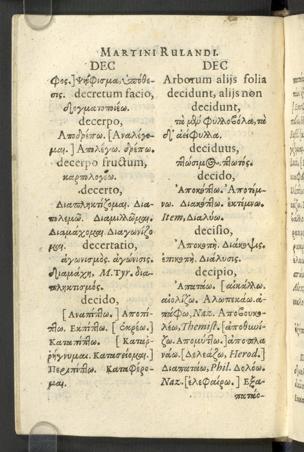 MARTINI RULANDI.
DEC
φος.] Ψήφισμα. ὑπόθε-
σις. decretum facio,
δογματοποιέω.
decerpo,
Αποδρέπω. [Αναλέγο-
μαι.] Απολέγω. δρέπω.
decerpo fructum,
καρπολογέω.
decerto,
Διαπληκτίζομαι. Δια-
πολεμῶ. Διαμιλλῶμαι.
Διαμάχομαι. Διαγωνίζο
μαι. decertatio,
ἀγωνισμός. ἀγώνισις.
διαμάχη. M. Tyr. δια-
πληκτισμός.
decido,
[Αναπίπτω.] Αποπί-
πτω. Εκπίπτω. [
Καταπίπτω. [Καταρ-
ρήγνυμαι. Κατασείομαι.]
Περιπίπτω. Καταφέρο-
μαι.
DEC
Arborum alijs folia
decidunt, alijs non
decidunt,
τὰ μὲν φυλλοβόλα, τὰ
δ' ἀείφυλλα.
deciduus,
πτώσιμος. πτωτός.
decido,
Ἀποκόπτω. Ἀποτέμ-
νω. Διακόπτω. ἐκτέμνω.
Item, Διαλύω.
decisio,
Ἀποκοπή. Διάκοψις.
ἐπικοπή. Διάλυσις.
decipio,
Ἀπατάω. [
αἰολίζω. Αλωπεκάω. ἀ-
πάφω, Naz. Αποβουκο-
λέω, Themist. [ἀποθωϊ-
ζω. Απομύττω.] ἀποπλα-
νάω. [Δελεάζω, Herod.]
Διαπατάω, Phil. Δολόω.
Naz. [ἐλεφαίρω.] Εξα-
πατάω-